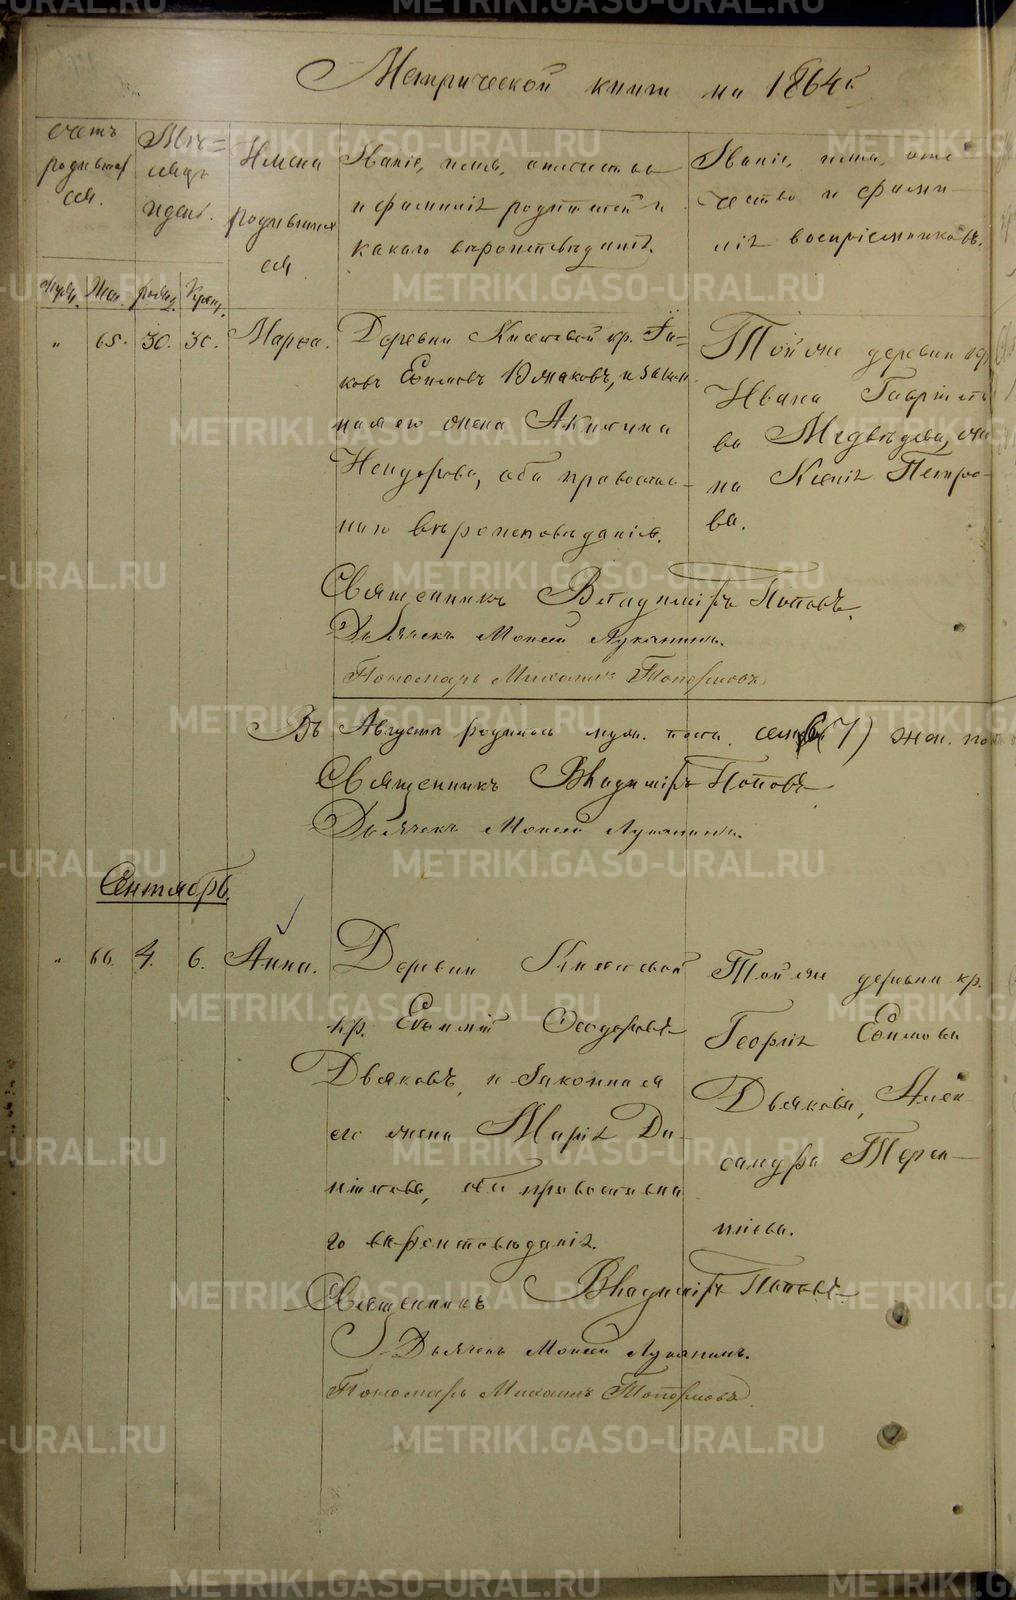 Метрической книги на 1864й
Счетъ родившихся.
Мѣсяцъ и день.
Имена родившихся
Званіе, имя, отчество
и фамилія родителей и
какаго вѣроисповѣданія.
Званіе, имя, отчество и фамилія воспріемниковъ.
Муж. Жен. рожд. Крещ.
" 65. 30. 30. Марѳа.
Деревни кр. Яковъ Ефимовъ и законная его жена Акилина
оба православнаго вѣроисповѣданія.
Той же деревни кр.
Ивана Гаврилова Медвѣдева, жена Ксенія Петрова.
Священникъ Владиміръ Поповъ.
Дьячекъ Моисей Луканинъ.
Пономарь Михаилъ Топорковъ
Въ Августѣ родилось муж. пола (7) жен. пола
Священникъ Владиміръ Поповъ
Дьячекъ Моисей Луканинъ.
Сентябрь.
" 66. 4. 6. Анна.
Деревни
кр. Евѳимій Ѳеодоровъ
Дьяковъ, и законная
его жена Марія Да-
нилова, оба православна
го вѣроисповѣданія.
Той же деревни кр.
Георгія Ефимова
Дьякова, Алек-
сандра Терен-
тіева.
Священникъ Владиміръ Поповъ.
Дьячекъ Моисей Луканинъ.
Пономарь Михаилъ Топорковъ
METRIKI.GASO-URAL.RU